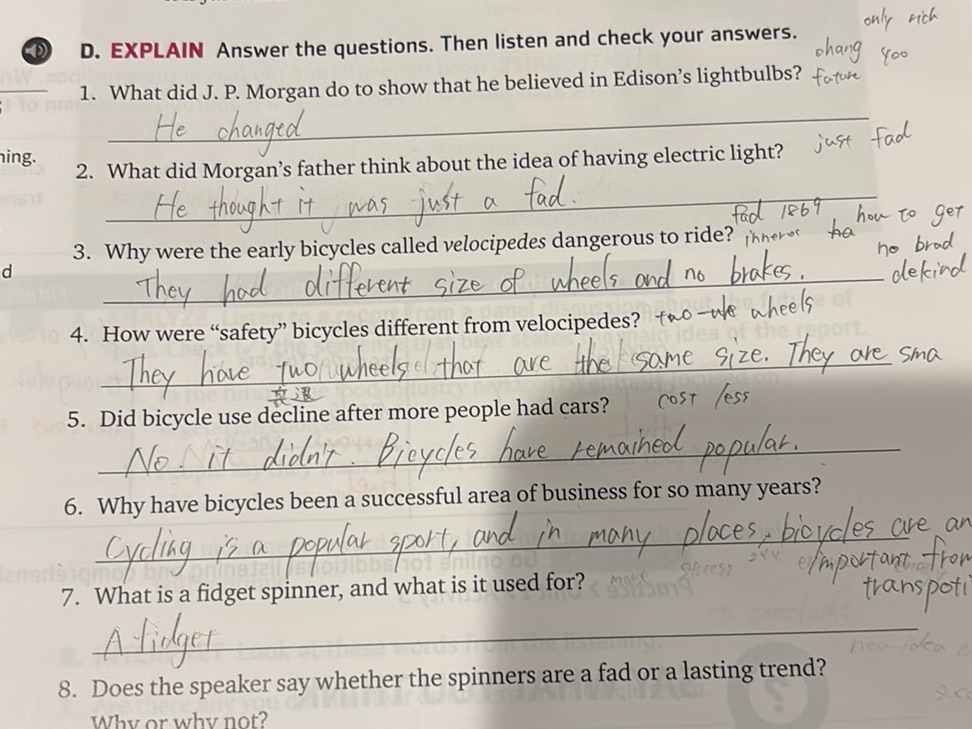 only rich
D. EXPLAIN Answer the questions. Then listen and check your answers.
chang too
1. What did J. P. Morgan do to show that he believed in Edison's lightbulbs? future
He changed
ning.
just fad
2. What did Morgan's father think about the idea of having electric light?
He thought it was just a fad.
fad 1869 how to get
3. Why were the early bicycles called velocipedes dangerous to ride?
no
d
They had different size of wheels and no brakes.
4. How were "safety" bicycles different from velocipedes? wheels
They have two wheels that are the same size. They are sma
衰退
5. Did bicycle use decline after more people had cars? cost less
No. it didn't. Bicycles have remained popular.
6. Why have bicycles been a successful area of business for so many years?
Cycling is a popular sport, and in many places, bicycles are an
important from
7. What is a fidget spinner, and what is it used for? more
transpoti
A fidget
new idea
8. Does the speaker say whether the spinners are a fad or a lasting trend?
Why or why not?